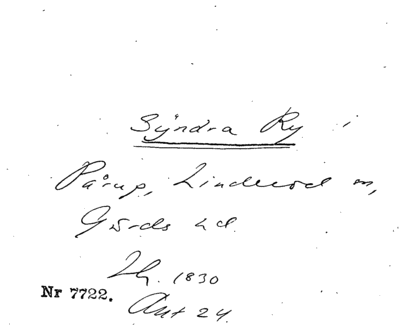 Syndra Ry i
Pårup, Linderöd sn,
Gärds hd.
Th. 1830
Nr 7722.
Ant 24